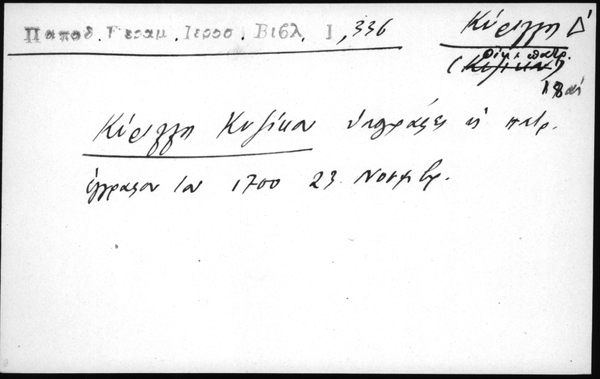 Παπαδ. Κεραμ. Ιεροσ. Βιβλ. 1, 336
Κύριλλος Δ'
οικ. πατρ.
(Κυζίκου)
18 αι
Κύριλλος Κυζίκου υπογράφει εις πατρ.
έγγραφον του 1700 23 Νοεμβρ.